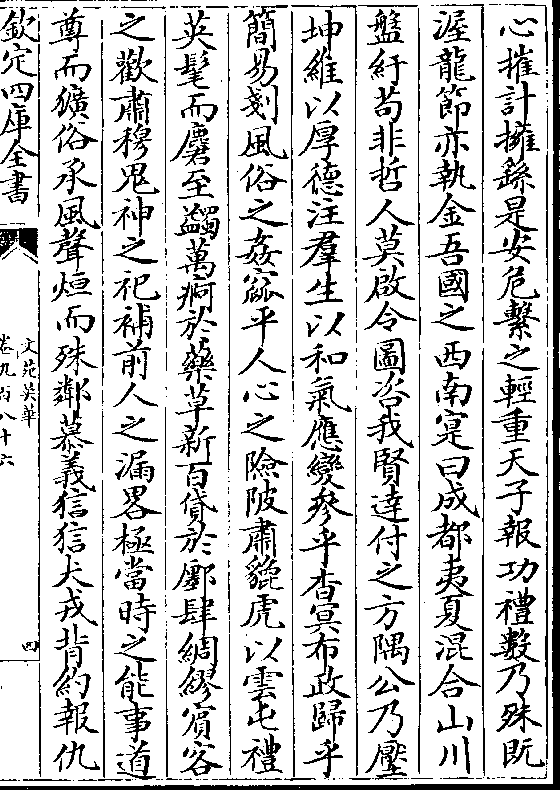 心摧計擁繇是安危繫之輕重天子報功禮數乃殊既
渥龍節亦執金吾國之西南寔曰成都夷夏混合山川
盤紆苟非哲人莫啟令圖咨我賢達付之方隅公乃壓
坤維以厚德注羣生以和氣應變參乎杳冥布政歸乎
簡易剗風俗之姦宄平人心之險陂肅貔虎以雲屯禮
英髦而麕至蠲萬痾於藥草新百貸於鄽肆綢繆賓客
之歡肅穆鬼神之祀補前人之漏畧極當時之能事道
尊而獷俗承風聲烜而殊鄰慕義狺狺犬戎背約報仇
欽定四庫全書
文苑英華
卷九百八十六
四